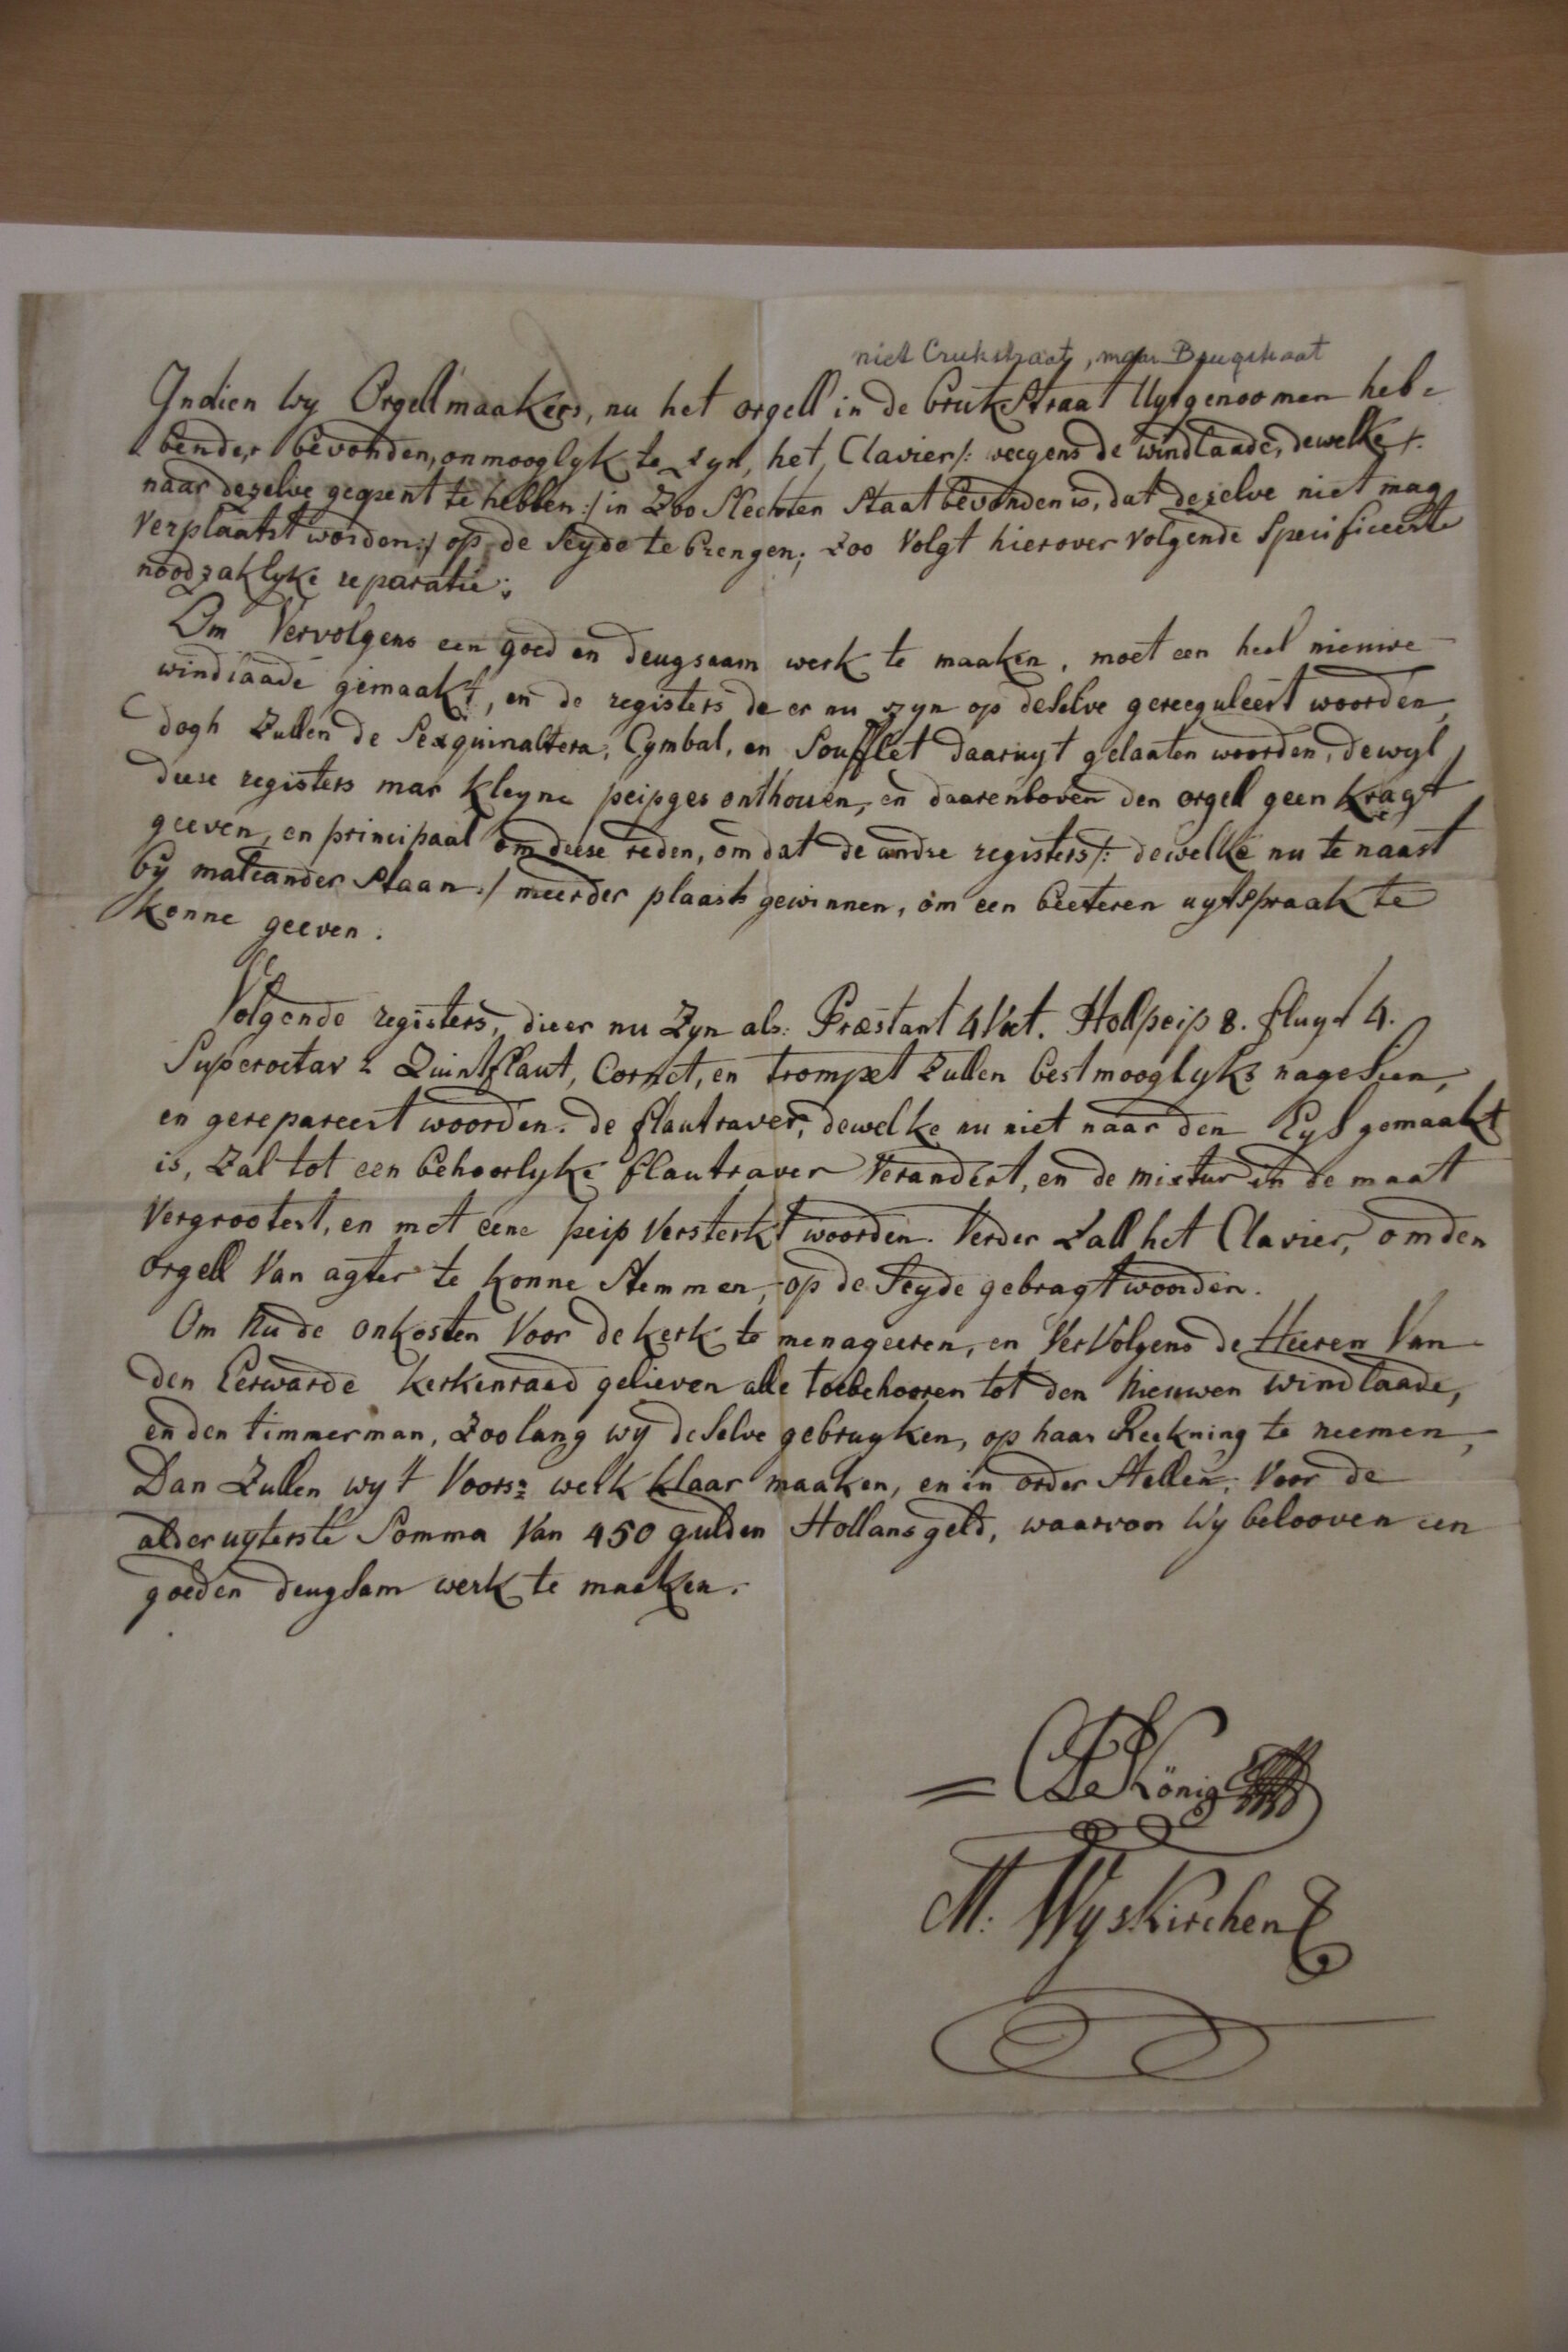 niet Crukstraat, maar Brugstraat
Indien wy Orgellmaakers, nu het orgell in de brukstraat Uytgenoomen heb=
bende, bevonden, onmooglyk te zyn, het Clavier /: weegens de windlaade, dewelke /:
naar dezelve geopent te hebben :/ in zoo slechten staat bevonden is, dat dezelve niet mag
verplaatst worden :/ op de Seyde te brengen; zoo volgt hierover volgende Specificeerte
noodzaklyke reparatie:
Om Vervolgens een goed en deugsaam werk te maaken, moet een heel nieuwe
windlaade gemaakt, en de registers de er nu zyn op deselve gereeguleert woorden,
dogh Zullen de Sexquinaltera, Cymbal, en Soufflet daaruyt gelaaten woorden, dewyl
deese registers mar kleyne peipges onthouen, en daarenboven den orgell geen kragt
geeven, en principaal om deese reden, om dat de andre registers /: dewelke nu te naast
by malcander staan :/ meerder plaash gewinnen, om een beeteren uytspraak te
konne geeven.
Volgende registers, die er nu Zyn als: Præstant 4 Vet. Hollpeip 8. fluyt 4.
Superoctav 2 Quintflaut, Cornet, en trompet Zullen bestmooglyks nagesien,
en gerepareert woorden. de flautraver, dewelke nu niet naar den Eys gemaakt
is, Zal tot een behoorlyke flautraver Verandert, en de mixtur in de maat
Vergrootert, en met eene peip Versterkt woorden. Verder Zall het Clavier, om den
orgell Van agter te konne Stemmen, op de Seyde gebragt woorden.
Om Nu de onkosten Voor de kerk te menageeren, en VerVolgens de Heeren Van
den Eerwarde kerkenraad gelieven alle toebehooren tot den Nieuwen windlaade,
en den timmerman, Zoolang wy deselve gebruyken, op haar Reekning te neemen,
Dan Zullen wy't Voorsz welk klaar maaken, en in order stellen, Voor de
alderuyterste Somma Van 450 gulden Hollans geld, waarvoor Wy belooven een
goeden deugsam werk te maaken.
= König
M. Wyskirchen